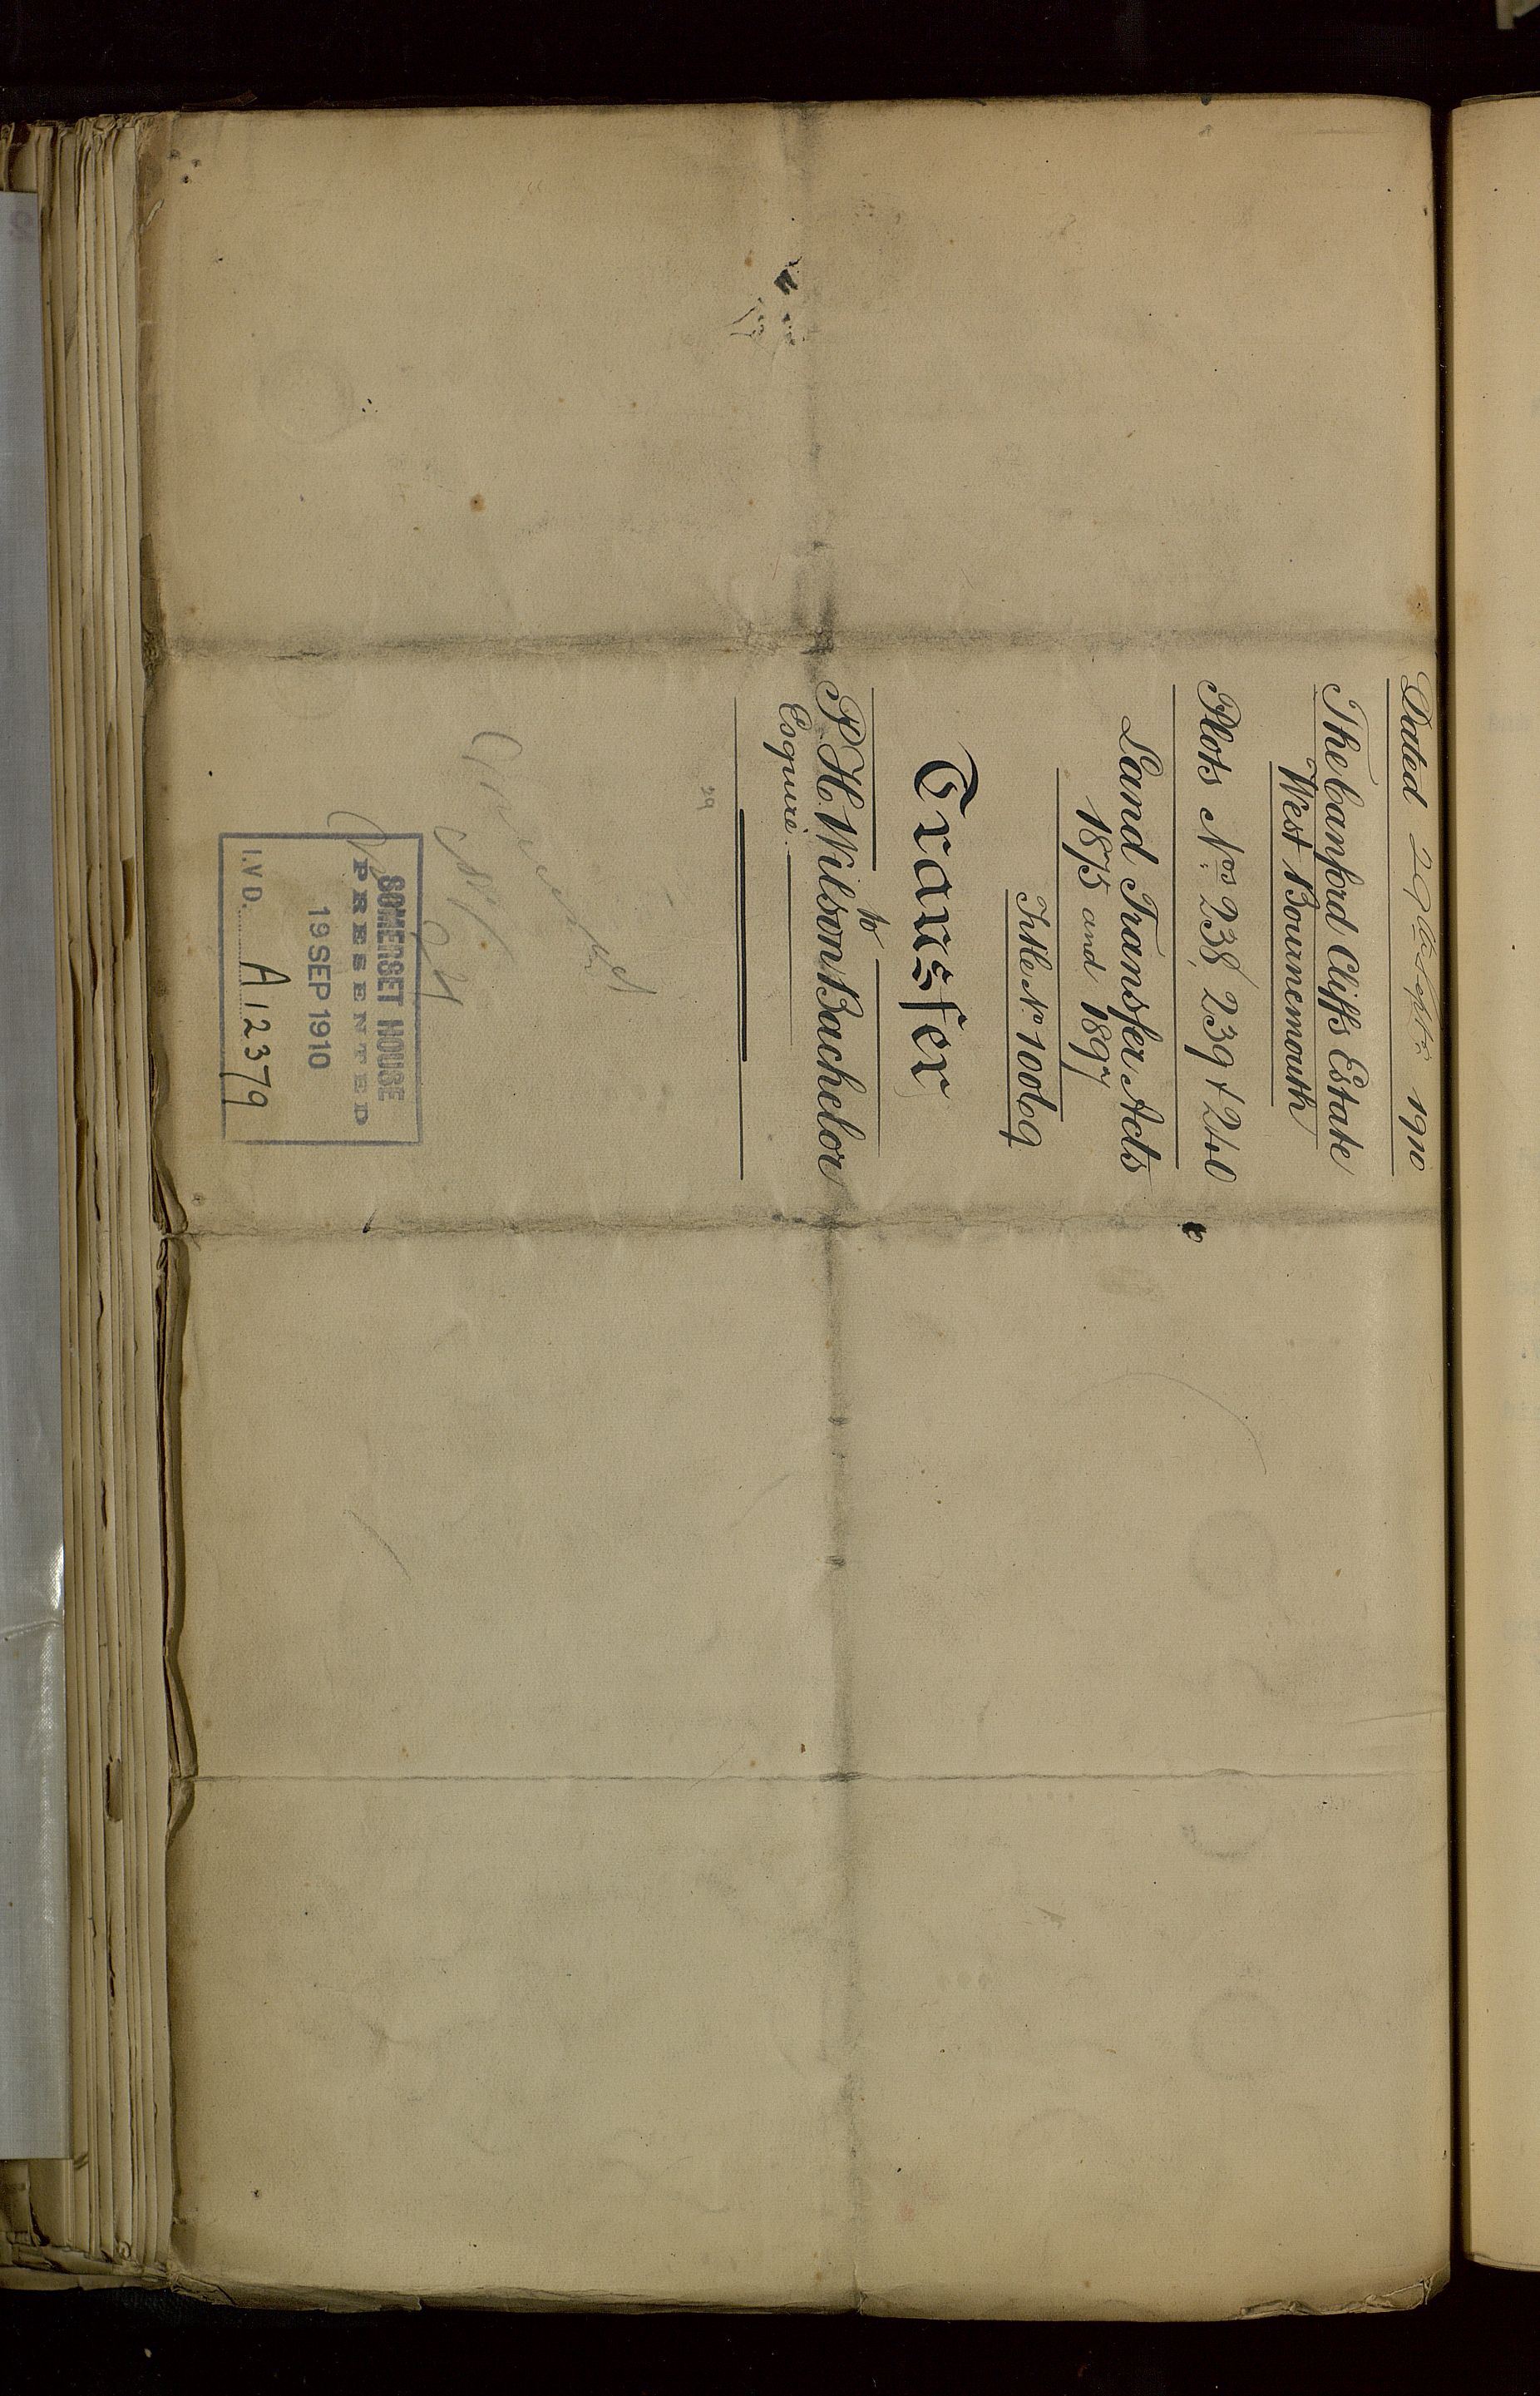 Dated 29th Septr. 1910
The Canford Cliffs Estate
West Bournemouth
Plots Nos. 238, 239 & 240
Land Transfer Acts
1875 and 1897
Title No. 10069
Transfer
to
P. H. Wilson Bachelor
Esquire
29
SOMERSET HOUSE
PRESENTED
19 SEP 1910
I.V.D. A12379